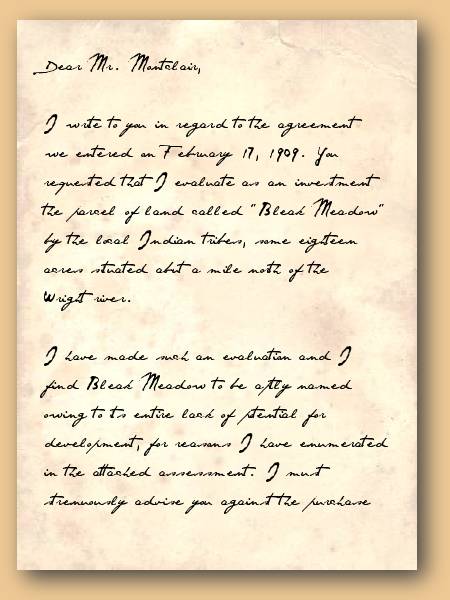 Dear Mr. Montclair,
I write to you in regard to the agreement
we entered on February 17, 1909. You
requested that I evaluate as an investment
the parcel of land called "Bleak Meadow"
by the local Indian tribes, some eighteen
acres situated about a mile north of the
Wright river.
I have made such an evaluation and I
find Bleak Meadow to be aptly named
owing to its entire lack of potential for
development, for reasons I have enumerated
in the attached assessment. I must
strenuously advise you against the purchase